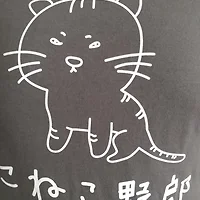 こねこ野郎